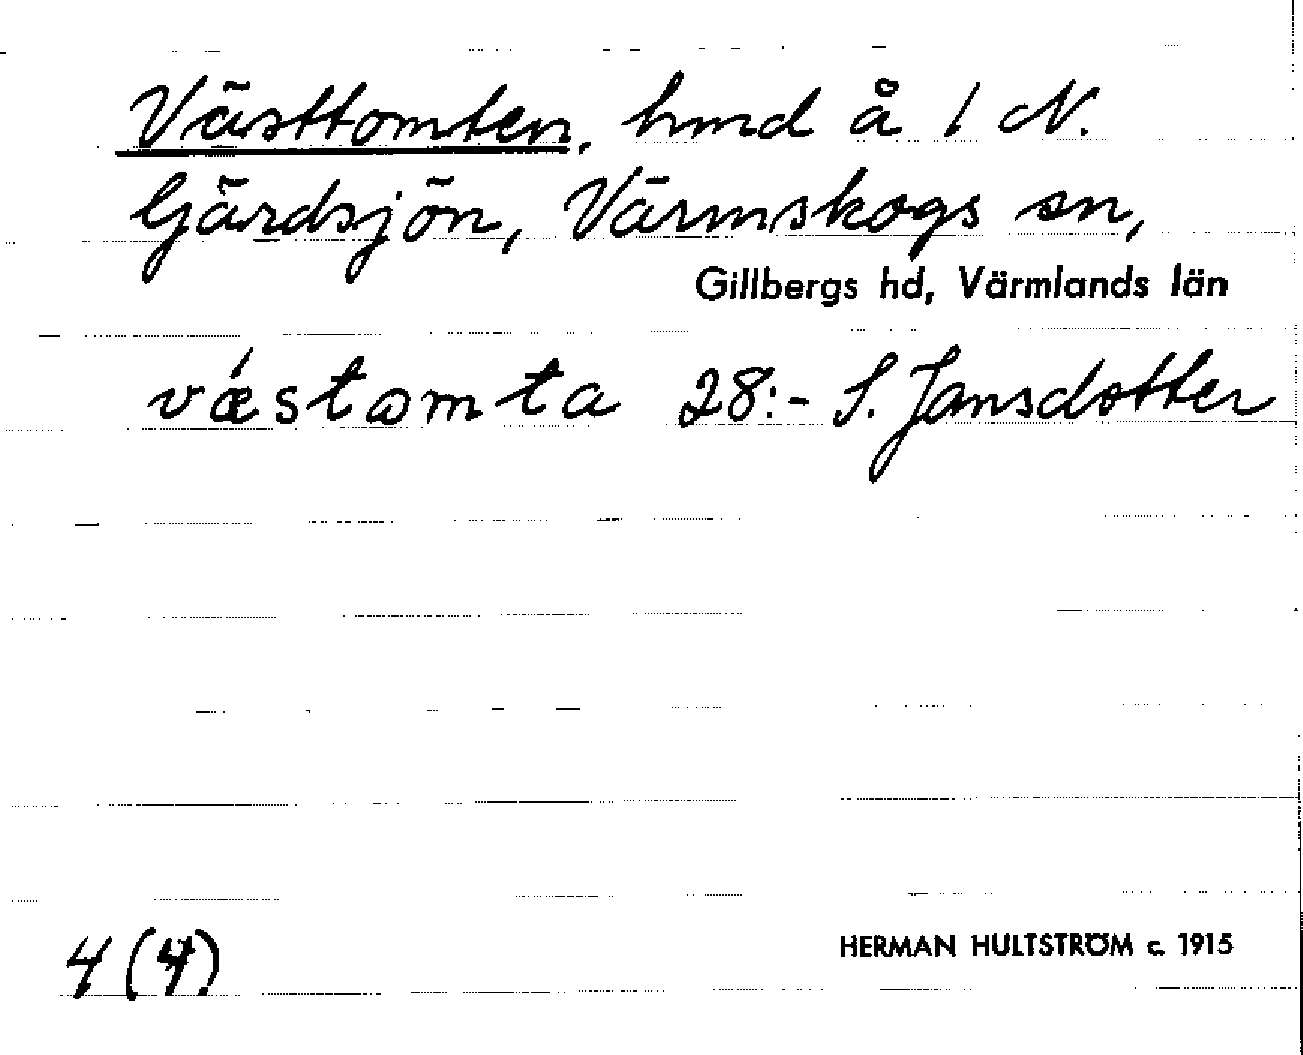 Västtomten, hmd å 1 N.
Gärdsjön, Värmskogs sn,
Gillbergs hd, Värmlands län
vǽstomta 28:- S. Jansdotter
4 (4)
HERMAN HULTSTRÖM c. 1915